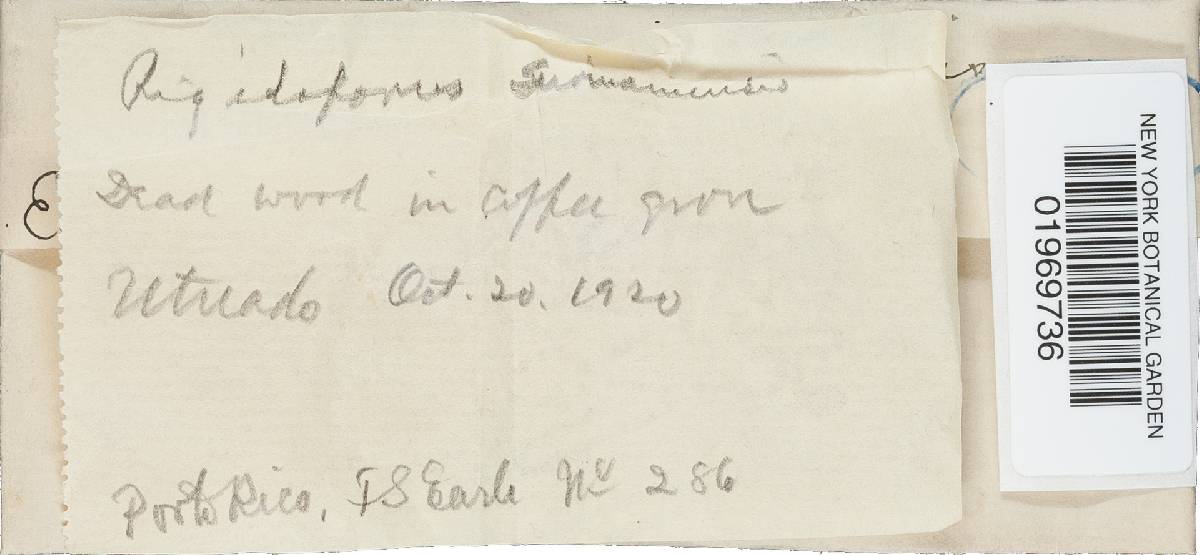 Rigidoporus Surinamensis
Dead wood in coffee grove
Utuado Oct. 20. 1920
Porto Rico, FS Earle No 286
E
NEW YORK BOTANICAL GARDEN
01969736